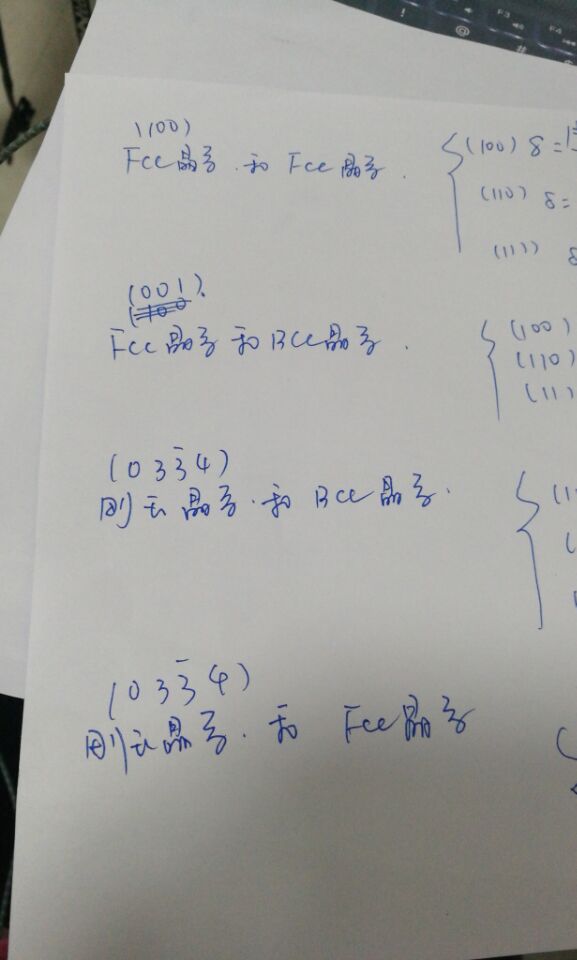 (100)
Fcc晶多.和 Fcc晶多.
(100) δ=
(110) δ=
(111) δ
(001).
Fcc晶多和Bcc晶多.
(100)
(110)
(11
(033̄4)
刚玉晶多.和 Bcc晶多.
(1
(
(033̄4)
刚玉晶多.和 Fcc晶多
F3
F4
!
@
#